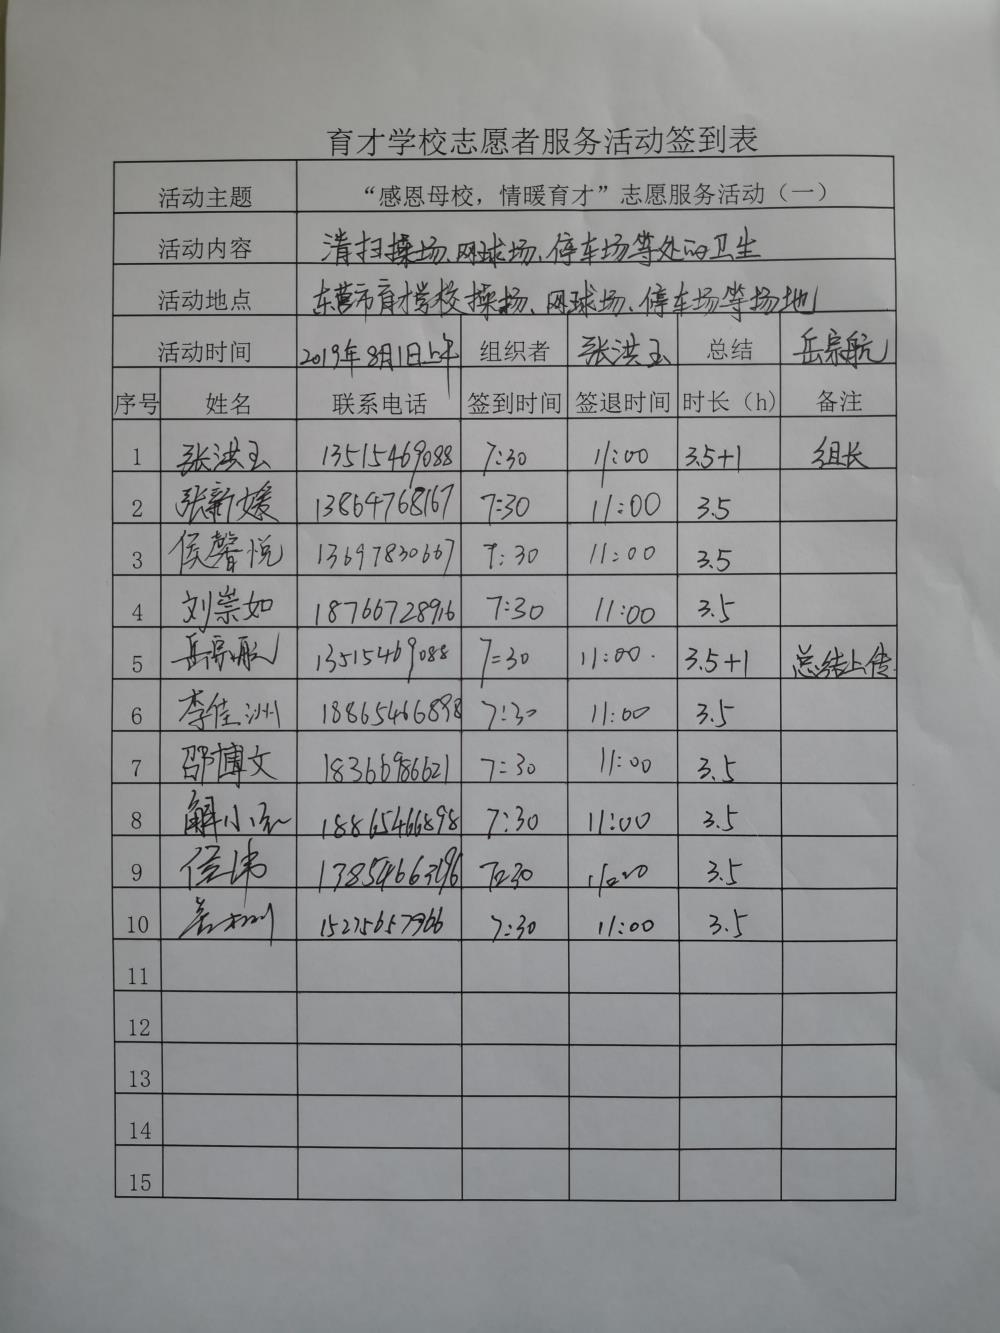 育才学校志愿者服务活动签到表
活动主题 “感恩母校，情暖育才”志愿服务活动（一）
活动内容 清扫操场、网球场、停车场等处的卫生
活动地点 东营市育才学校操场、网球场、停车场等场地
活动时间 2019年8月1日上午 组织者 张洪玉 总结 岳宗航
序号 姓名 联系电话 签到时间 签退时间 时长（h） 备注
1 张洪玉 13515469088 7:30 11:00 3.5+1 组长
2 张新媛 13864768167 7:30 11:00 3.5
3 侯馨悦 13697830667 7:30 11:00 3.5
4 刘崇如 18766728916 7:30 11:00 3.5
5 岳宗航 13515469088 7:30 11:00 3.5+1 总结上传
6 李佳洲 18865466898 7:30 11:00 3.5
7 邵博文 18366986621 7:30 11:00 3.5
8 解小 18865466898 7:30 11:00 3.5
9 13854663196 7:30 11:00 3.5
10 15275657966 7:30 11:00 3.5
11
12
13
14
15